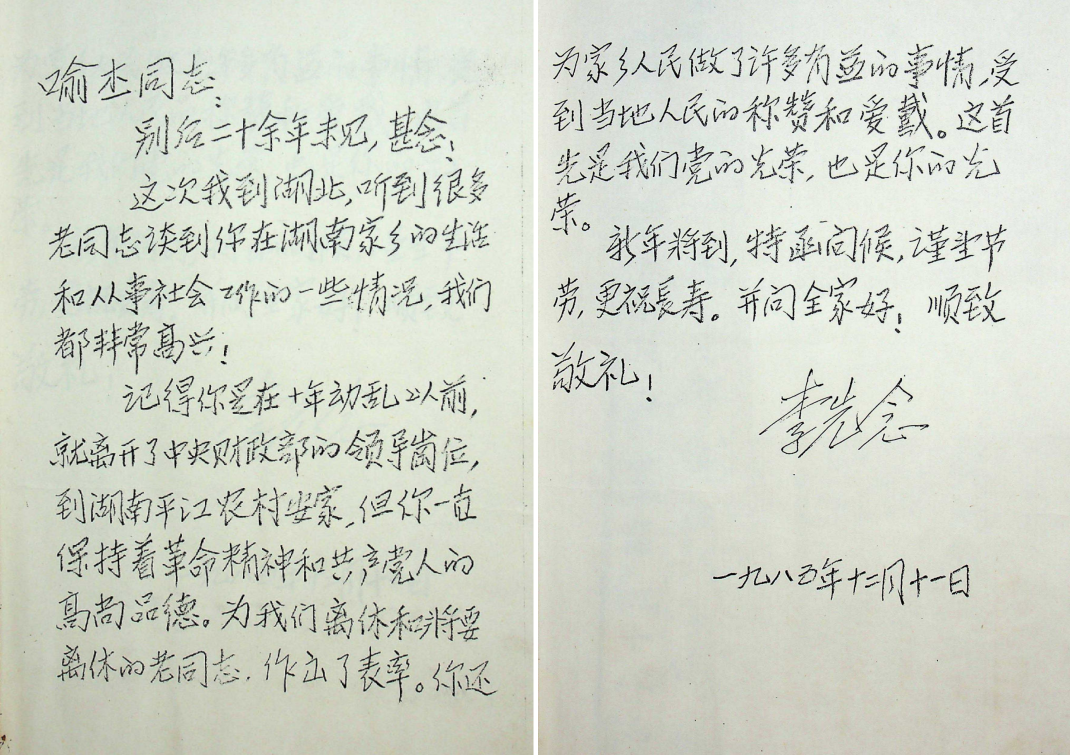 喻杰同志:
别后二十余年未见,甚念!
这次我到湖北,听到很多
老同志谈到你在湖南家乡的生活
和从事社会工作的一些情况,我们
都非常高兴!
记得你是在十年动乱以前,
就离开了中央财政部的领导岗位,
到湖南平江农村安家,但你一直
保持着革命精神和共产党人的
高尚品德。为我们离休和将要
离休的老同志,作出了表率。你还
为家乡人民做了许多有益的事情,受
到当地人民的称赞和爱戴。这首
先是我们党的光荣,也是你的光
荣。
新年将到,特函问候,谨望节
劳,更祝長寿。并问全家好!顺致
敬礼!
李先念
一九八五年十二月十一日